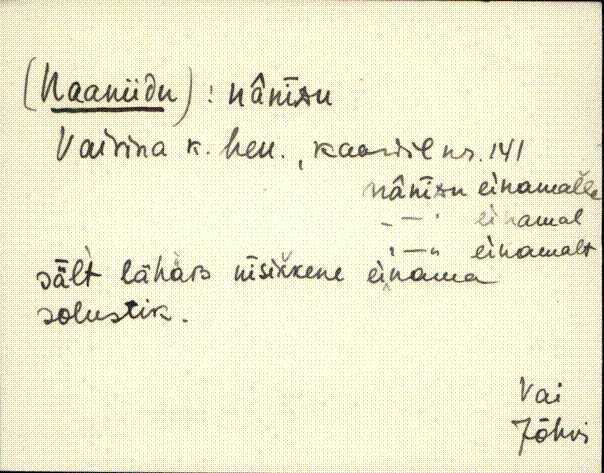 (Naaniidu) : nânīᴅu
Vaivina k. hen., kaardil nr. 141
nânīᴅu einamaĺĺe
– " – einamal
– " – einamalt
sält lähäʙ nīsikkene einama
solustik.
Vai
Jõhvi